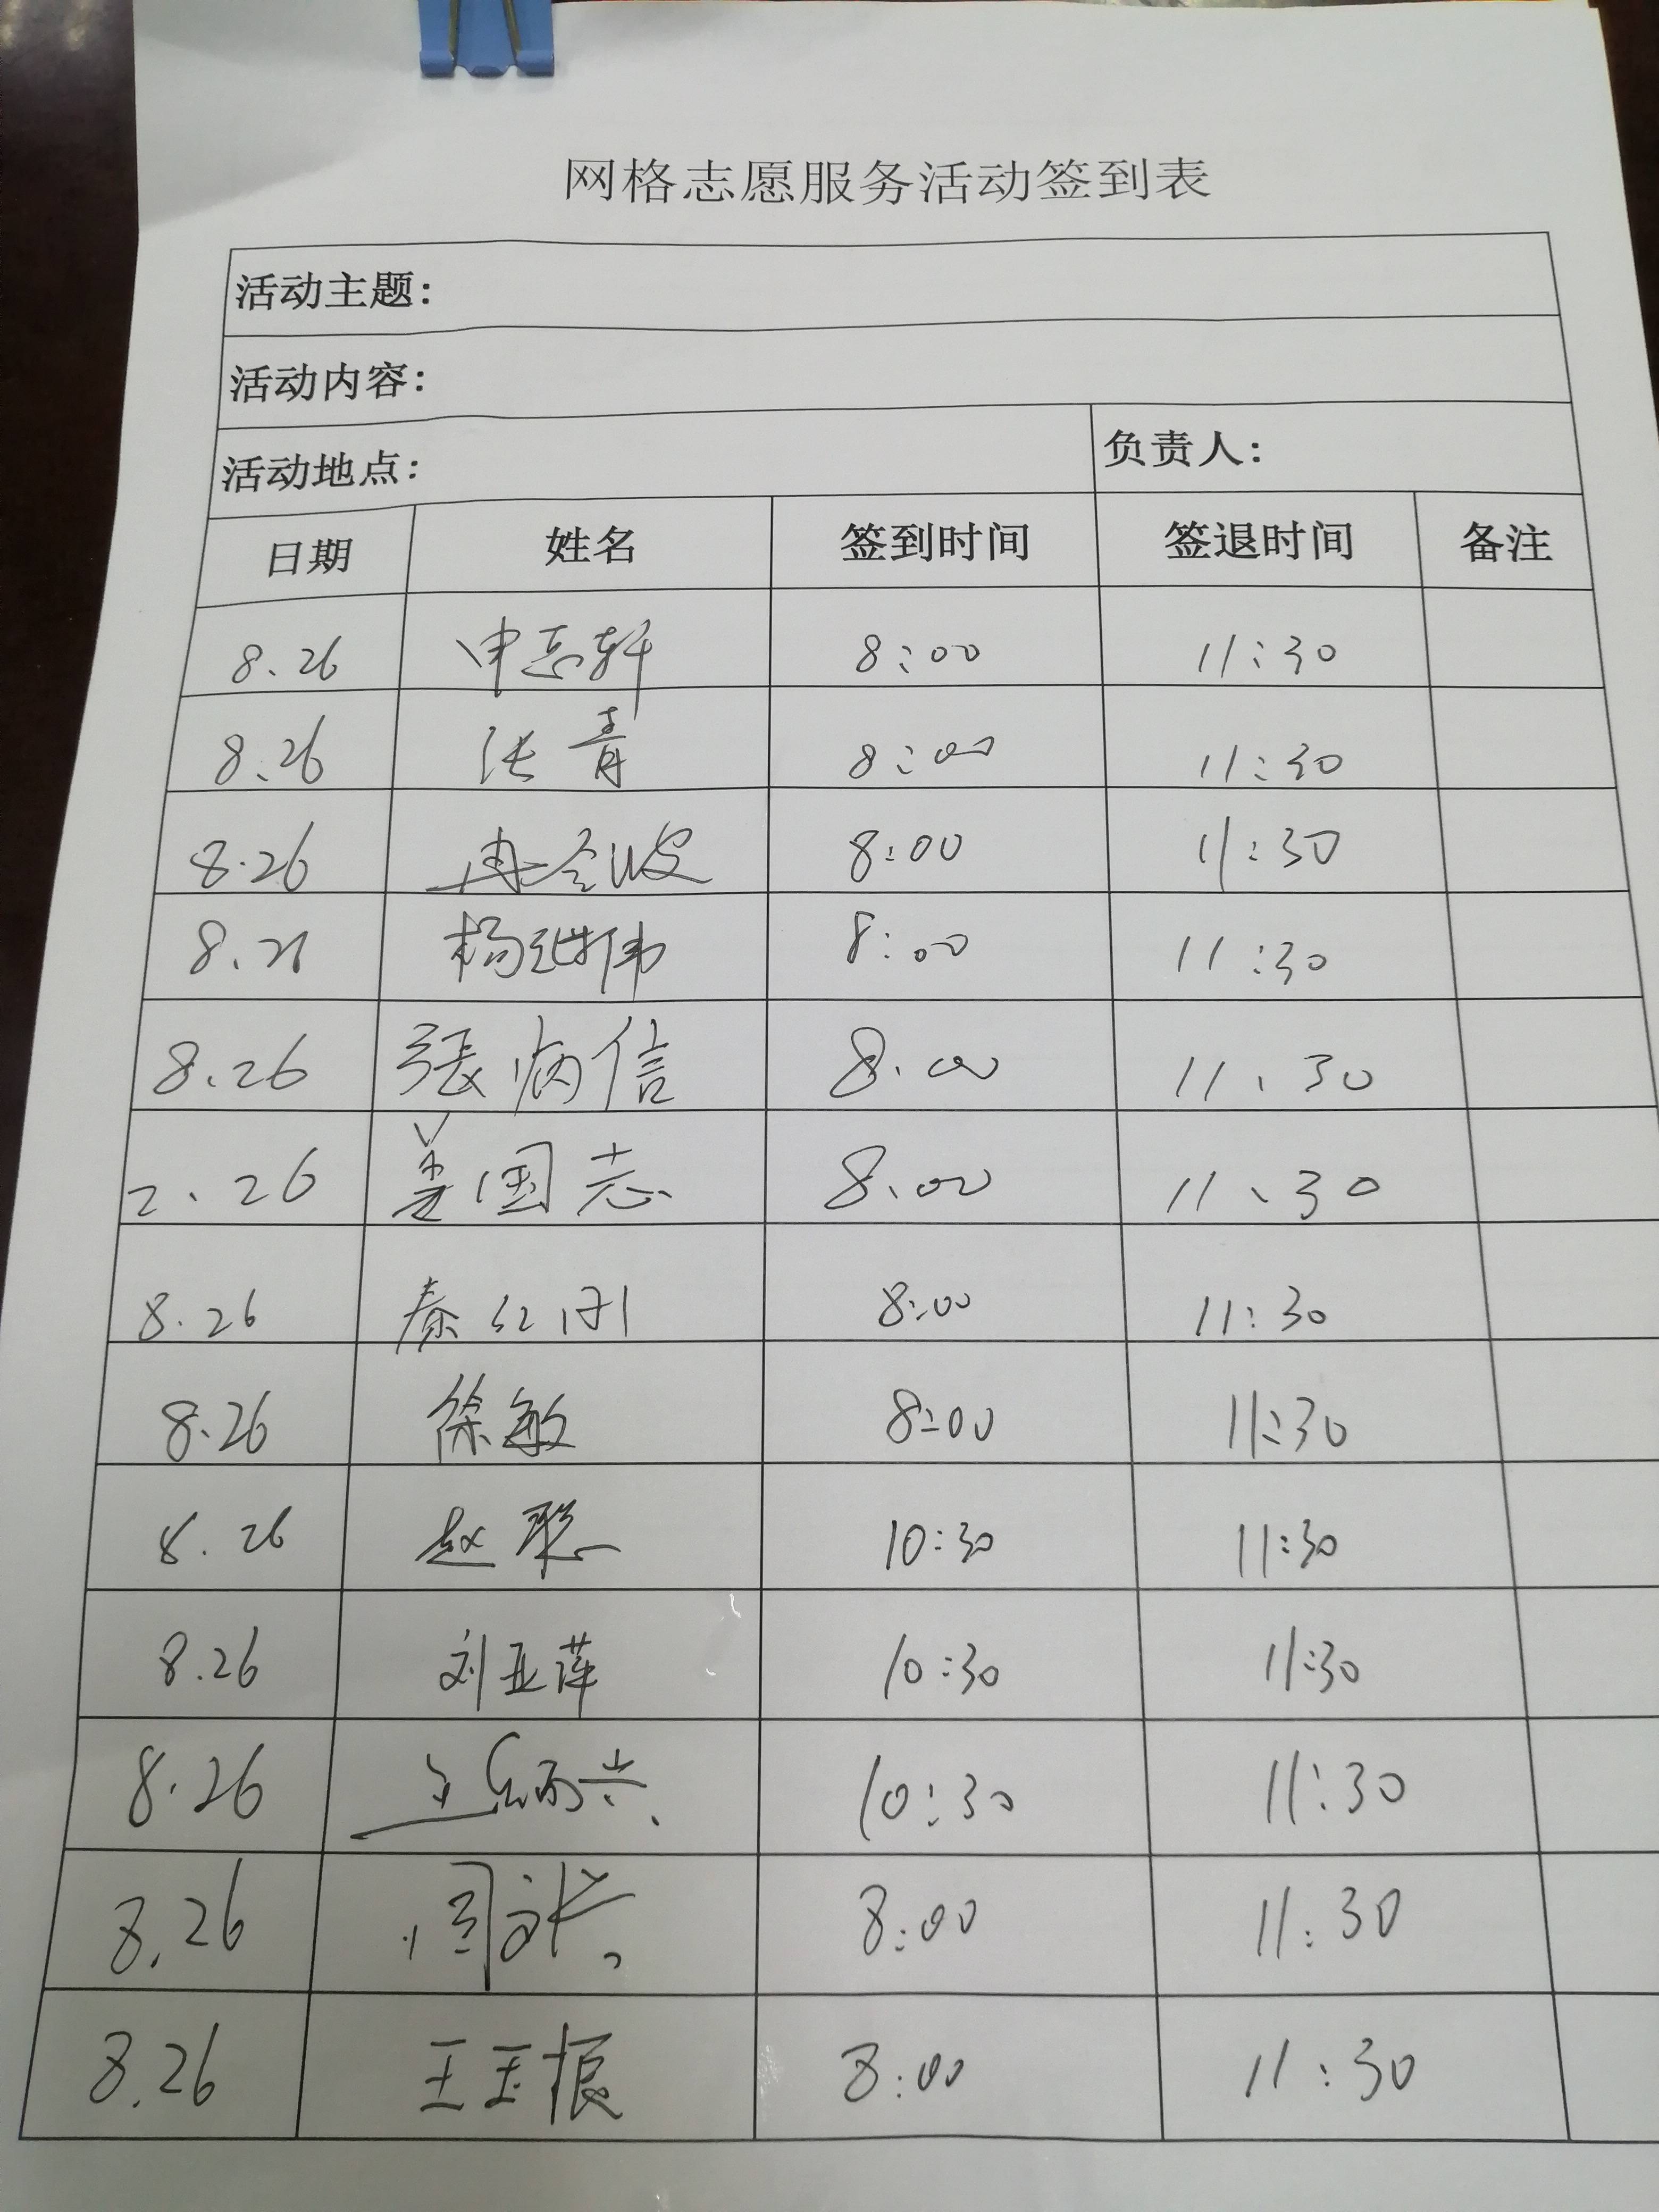 网格志愿服务活动签到表
活动主题：
活动内容：
活动地点： 负责人：
日期 姓名 签到时间 签退时间 备注
8.26 申志轩 8:00 11:30
8.26 张青 8:00 11:30
8.26 冉令波 8:00 11:30
8.26 杨继伟 8:00 11:30
8.26 张炳信 8.00 11.30
2.26 姜国志 8.00 11.30
8.26 秦红刚 8:00 11:30
8.26 徐敏 8:00 11:30
8.26 赵聪 10:30 11:30
8.26 刘亚萍 10:30 11:30
8.26 10:30 11:30
8.26 周 8:00 11:30
8.26 王玉振 8:00 11:30